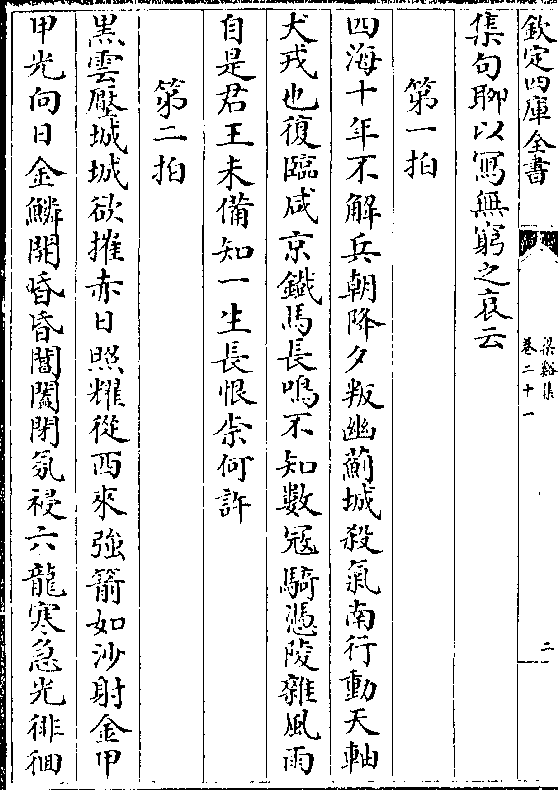 欽定四庫全書
梁谿集
卷二十一
二
集句聊以寫無窮之哀云
第一拍
四海十年不解兵朝降夕叛幽薊城殺氣南行動天軸
犬戎也復臨咸京鐵馬長鳴不知數冦騎憑陵雜風雨
自是君王未備知一生長恨柰何許
第二拍
黒雲壓城城欲摧赤日照耀從西來強箭如沙射金甲
甲光向日金鱗開昏昏閶闔閉氛祲六龍寒急光徘徊